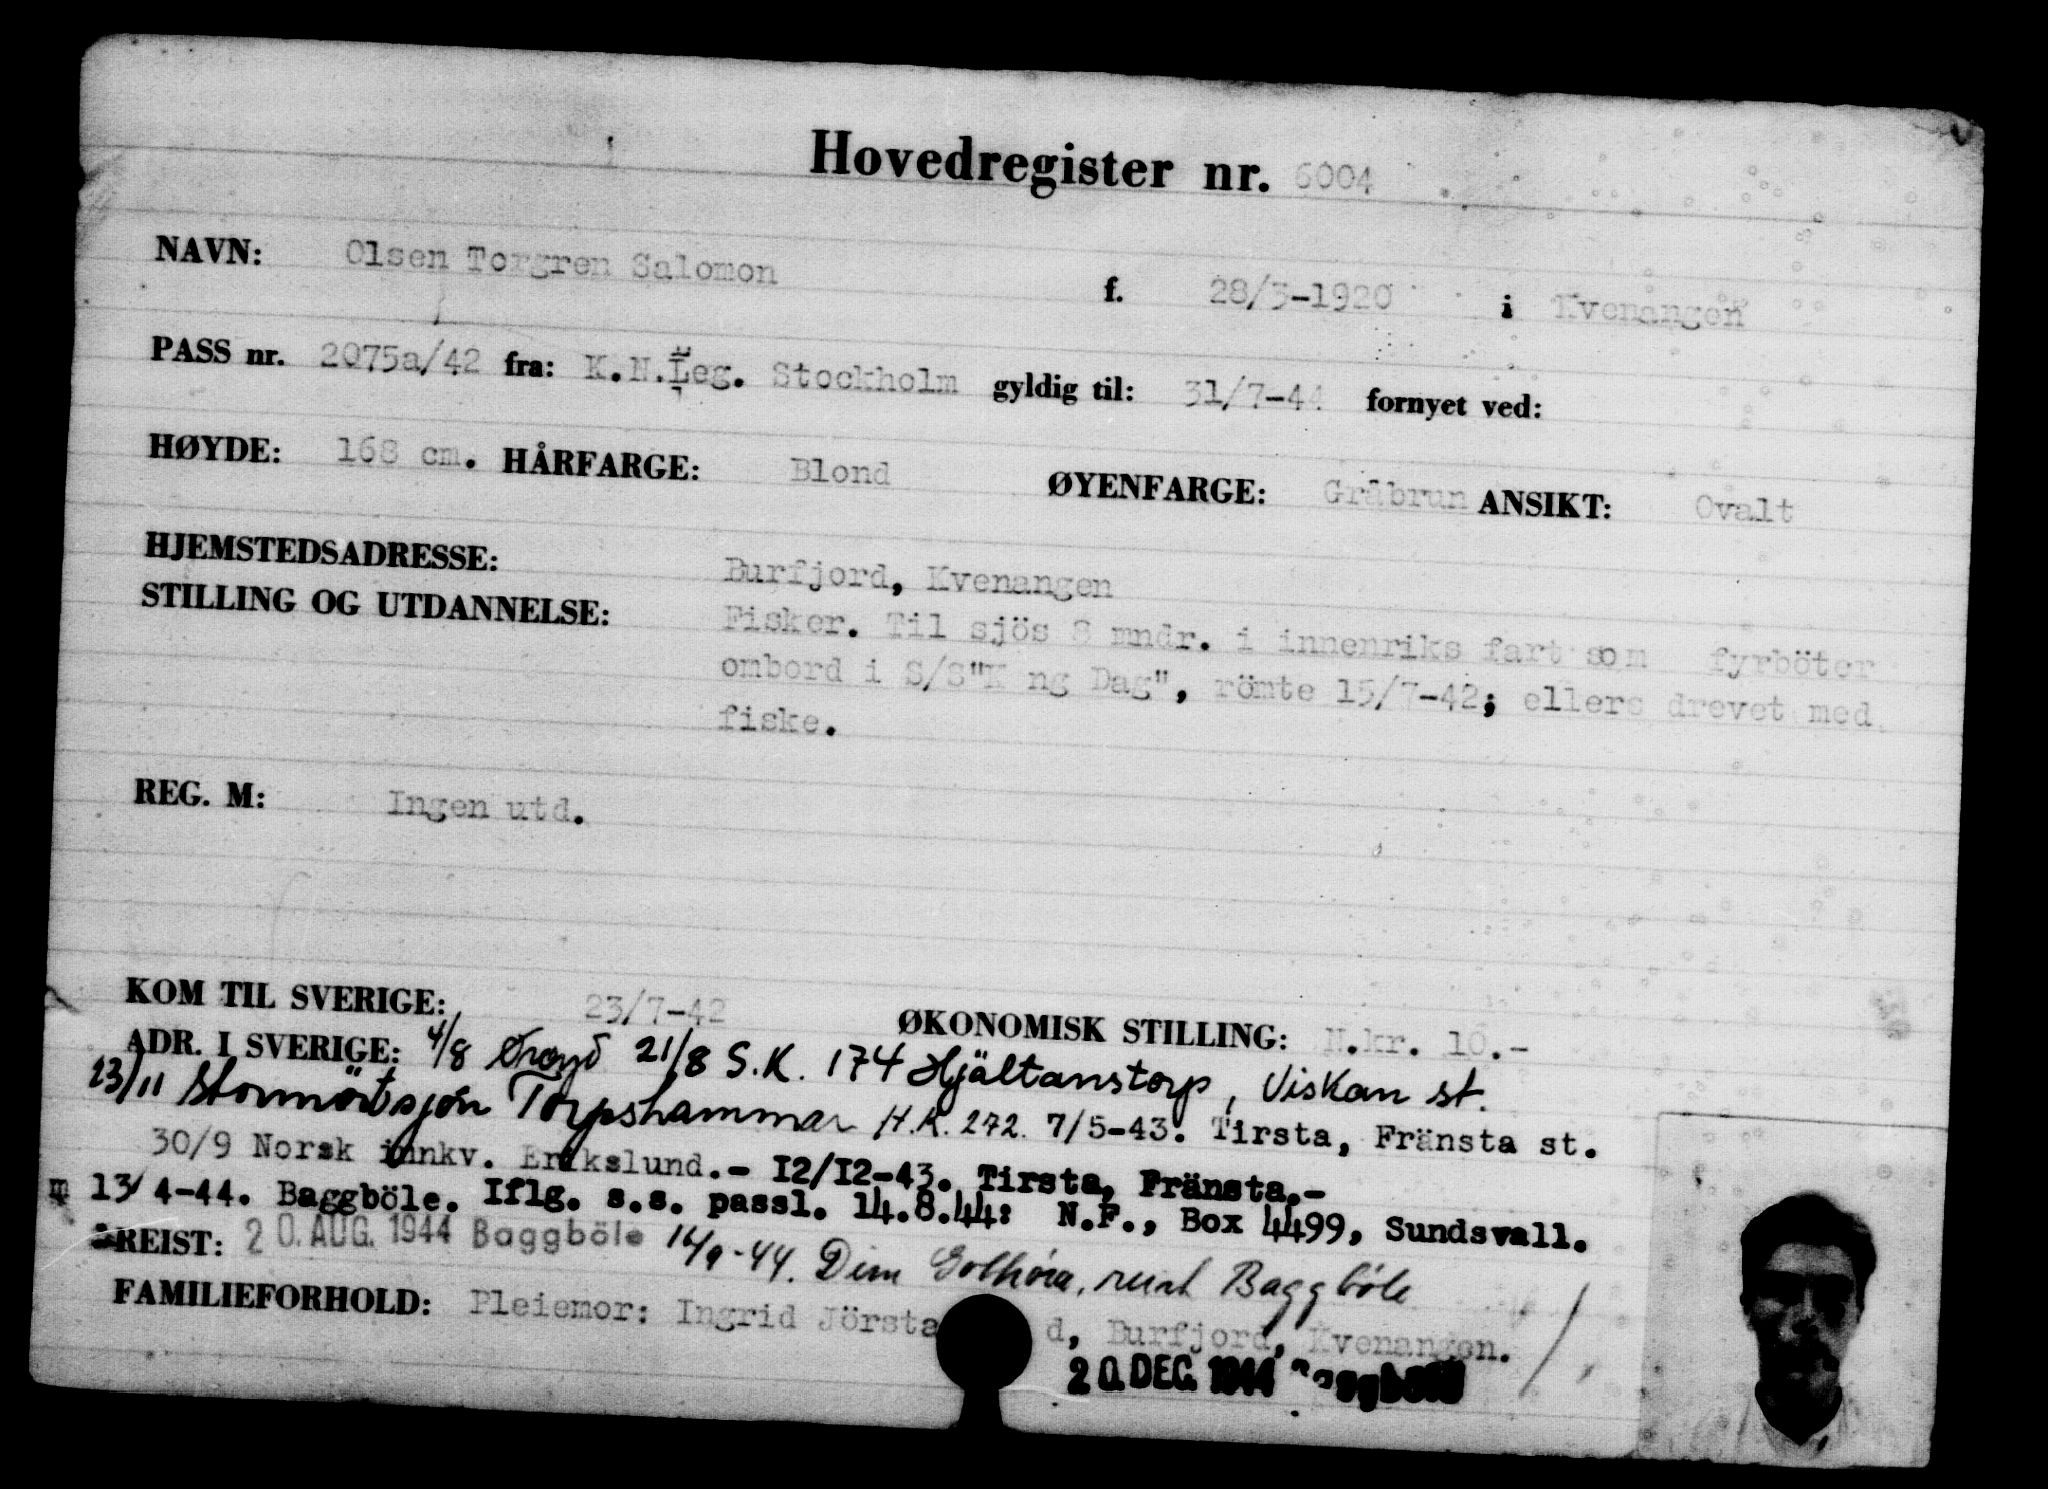 Hovedregister nr. 6004
NAVN: Olsen Torgren Salomon f. 28/3-1920 i Kvenangen
PASS nr. 2075a/42 fra: K.N.Leg. Stockholm gyldig til: 31/7-44 fornyet ved:
HØYDE: 168 cm. HÅRFARGE: Blond ØYENFARGE: Gråbrun ANSIKT: Ovalt
HJEMSTEDSADRESSE: Burfjord, Kvenangen
STILLING OG UTDANNELSE: Fisker. Til sjös 8 mndr. i innenriks fart som fyrböter
ombord i S/S"K ng Dag", römte 15/7-42; ellers drevet med
fiske.
REG. M: Ingen utd.
KOM TIL SVERIGE: 23/7-42 ØKONOMISK STILLING: N.kr. 10.-
ADR. I SVERIGE: 4/8 21/8 S.K. 174 Hjältanstorp, Viskan st.
23/11 Stormörtsjön Torpshammar H.K. 272. 7/5-43. Tirsta, Fränsta st.
30/9 Norsk innkv. Erikslund.- 12/12-43. Tirsta, Fränsta.-
m 13/4-44. Baggböle. Iflg. s.s. passl. 14.8.44: N.F., Box 4499, Sundsvall.
REIST: 20. AUG. 1944 Baggböle 16/9-44. Dim Baggböle
FAMILIEFORHOLD: Pleiemor: Ingrid Jörsta d, Burfjord, Kvenangen.
20. DEC. 1944 Baggböle